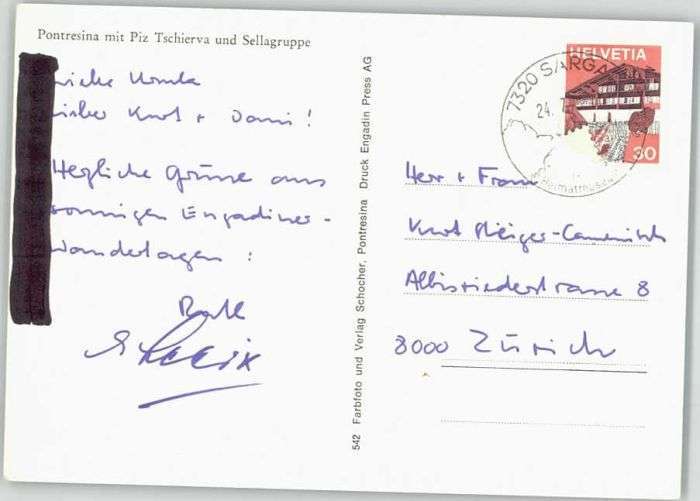 Pontresina mit Piz Tschierva und Sellagruppe
Liebe Ursula
Lieber Kurt + Dani!
Herzliche Grüsse aus
sonnigen Engadiner-
Wandertagen:
Felix
542 Farbfoto und Verlag Schocher, Pontresina Druck Engadin Press AG
7320 SARGA
24.
Heimatmuseum
HELVETIA
30
Herr + Frau
Kurt
Albisriederstrasse 8
8000 Zürich